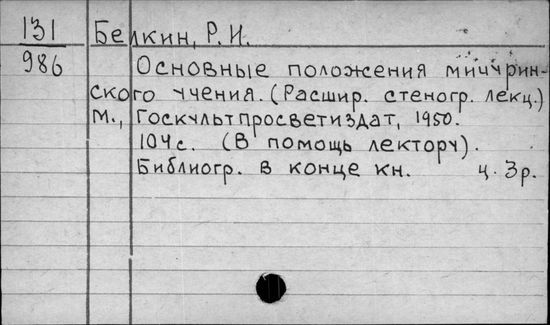 131
986
Белкин, Р. И.
Основные положения мичурин-
ского учения. (Расшир. стеногр. лекц.)
М., Госкультпросветиздат, 1950.
104 с. (В помощь лектору).
Библиогр. в конце кн. ц. 3р.